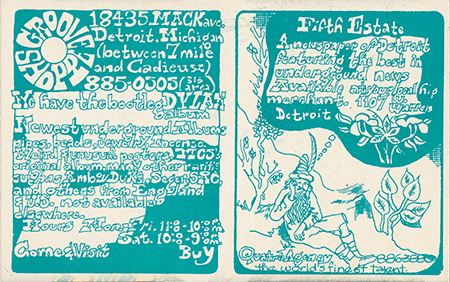 GROOVE SHOPPE
18435 MACK ave.
Detroit. Michigan
(between 7 mile
and Cadieux)
885-0505 (313 area)
We have the bootleg DYLAN
album
Newest underground albums
pipes, beads, jewelry, incense
Weird & unusual posters,
original album, many other
Amboy Dukes, Seger, SRC,
and others from England
& U.S. not available
elsewhere.
Hours Mon-Fri. 11:-10:pm
Sat. 10:-9:pm
Come & Visit Buy
Fifth Estate
A newspaper of Detroit
featuring the best in
underground news
Available at your local hip
merchant. 1107 W. Warren
Detroit
the world's finest talent.